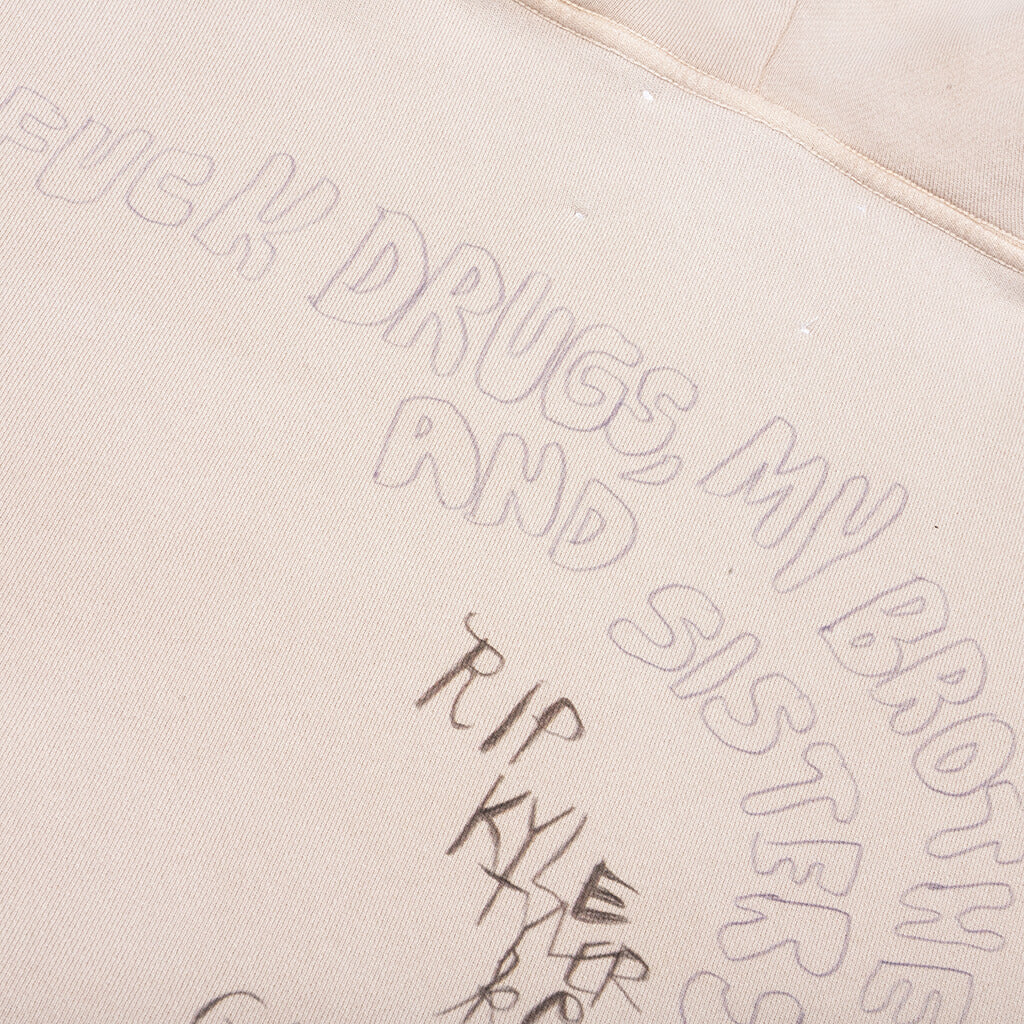 FUCK DRUGS, MY BROTHE
AND SISTERS
RIP
KYLE
TYLER